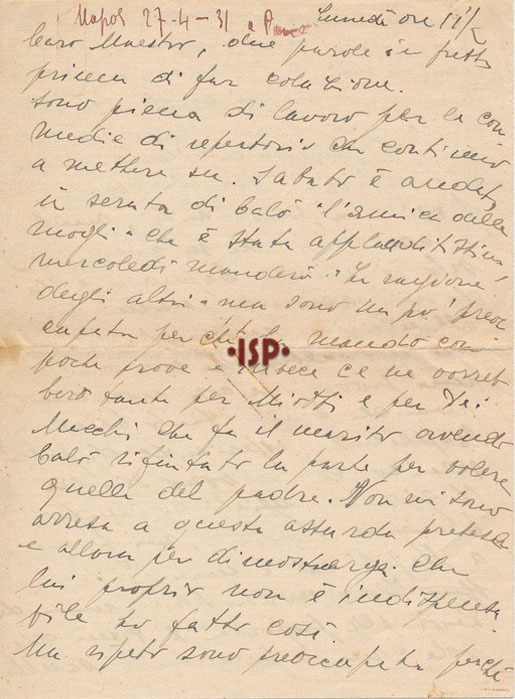 Napoli 27-4-31 a
Lunedì ore 11 1/2
Caro Maestro, due parole in fretta
prima di far colazione.
Sono piena di lavoro per le com
medie di repertorio che continuo
a mettere su. Sabato è andata
in serata di Calò "l'amica delle
mogli" che è stata applauditissima,
mercoledì manderò "La ragione
degli altri" ma sono un po' preoc
cupata perchè la mando con
poche prove e invece ce ne vorreb
bero tante per Miotti e per De
Macchi che fa il marito avendo
Calò rifiutato la parte per volere
quella del padre. Non mi sono
arresa a questa assurda pretesa
e allora per dimostrargli che
lui proprio non è indispensa
bile ho fatto così.
Ma ripeto sono preoccupata perchè
·ISP·